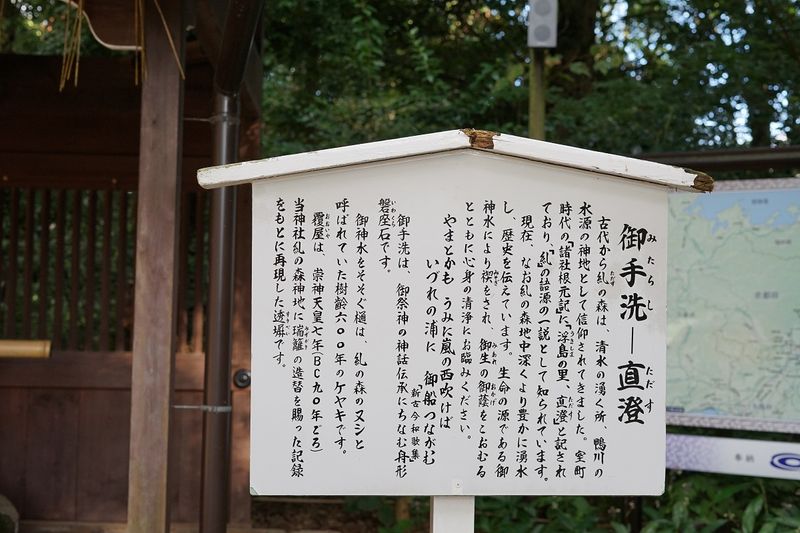 御手洗―直澄
みたらし ただす
古代から糺の森は、清水の湧く所、鴨川の
水源の神地として信仰されてきました。室町
時代の「諸社根元記」に「浮島の里、直澄」と記され
ており、「糺」の語源の一説として知られています。
現在、なお糺の森地中深くより豊かに湧水
し、歴史を伝えています。生命の源である御
神水により禊をされ、御生の御蔭をこおむる
とともに心身の清浄にお臨みください。
やまとかも うみに嵐の西吹けば
いづれの浦に 御船つながむ
「新古今和歌集」
御手洗は、御祭神の神話伝承にちなむ舟形
磐座石です。
御神水をそそぐ樋は、糺の森のヌシと
呼ばれていた樹齢六〇〇年のケヤキです。
覆屋は、崇神天皇七年(BC九〇年ごろ)
当神社糺の森神地に瑞籬の造替を賜った記録
をもとに再現した透塀です。
京都府
奉納